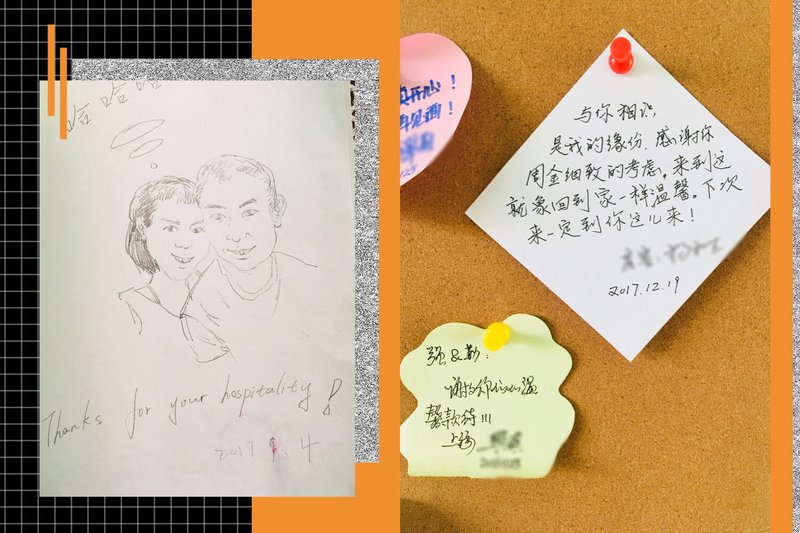 哈哈哈
Thanks for your hospitality!
2017.1.4
开心！
再见面！
与你相识，
是我的缘份，感谢你
周全细致的考虑，来到这
就象回到家一样温馨。下次
来一定到你这儿来！
2017.12.19
强&勤：
谢谢你们的温
馨款待!!!
上海